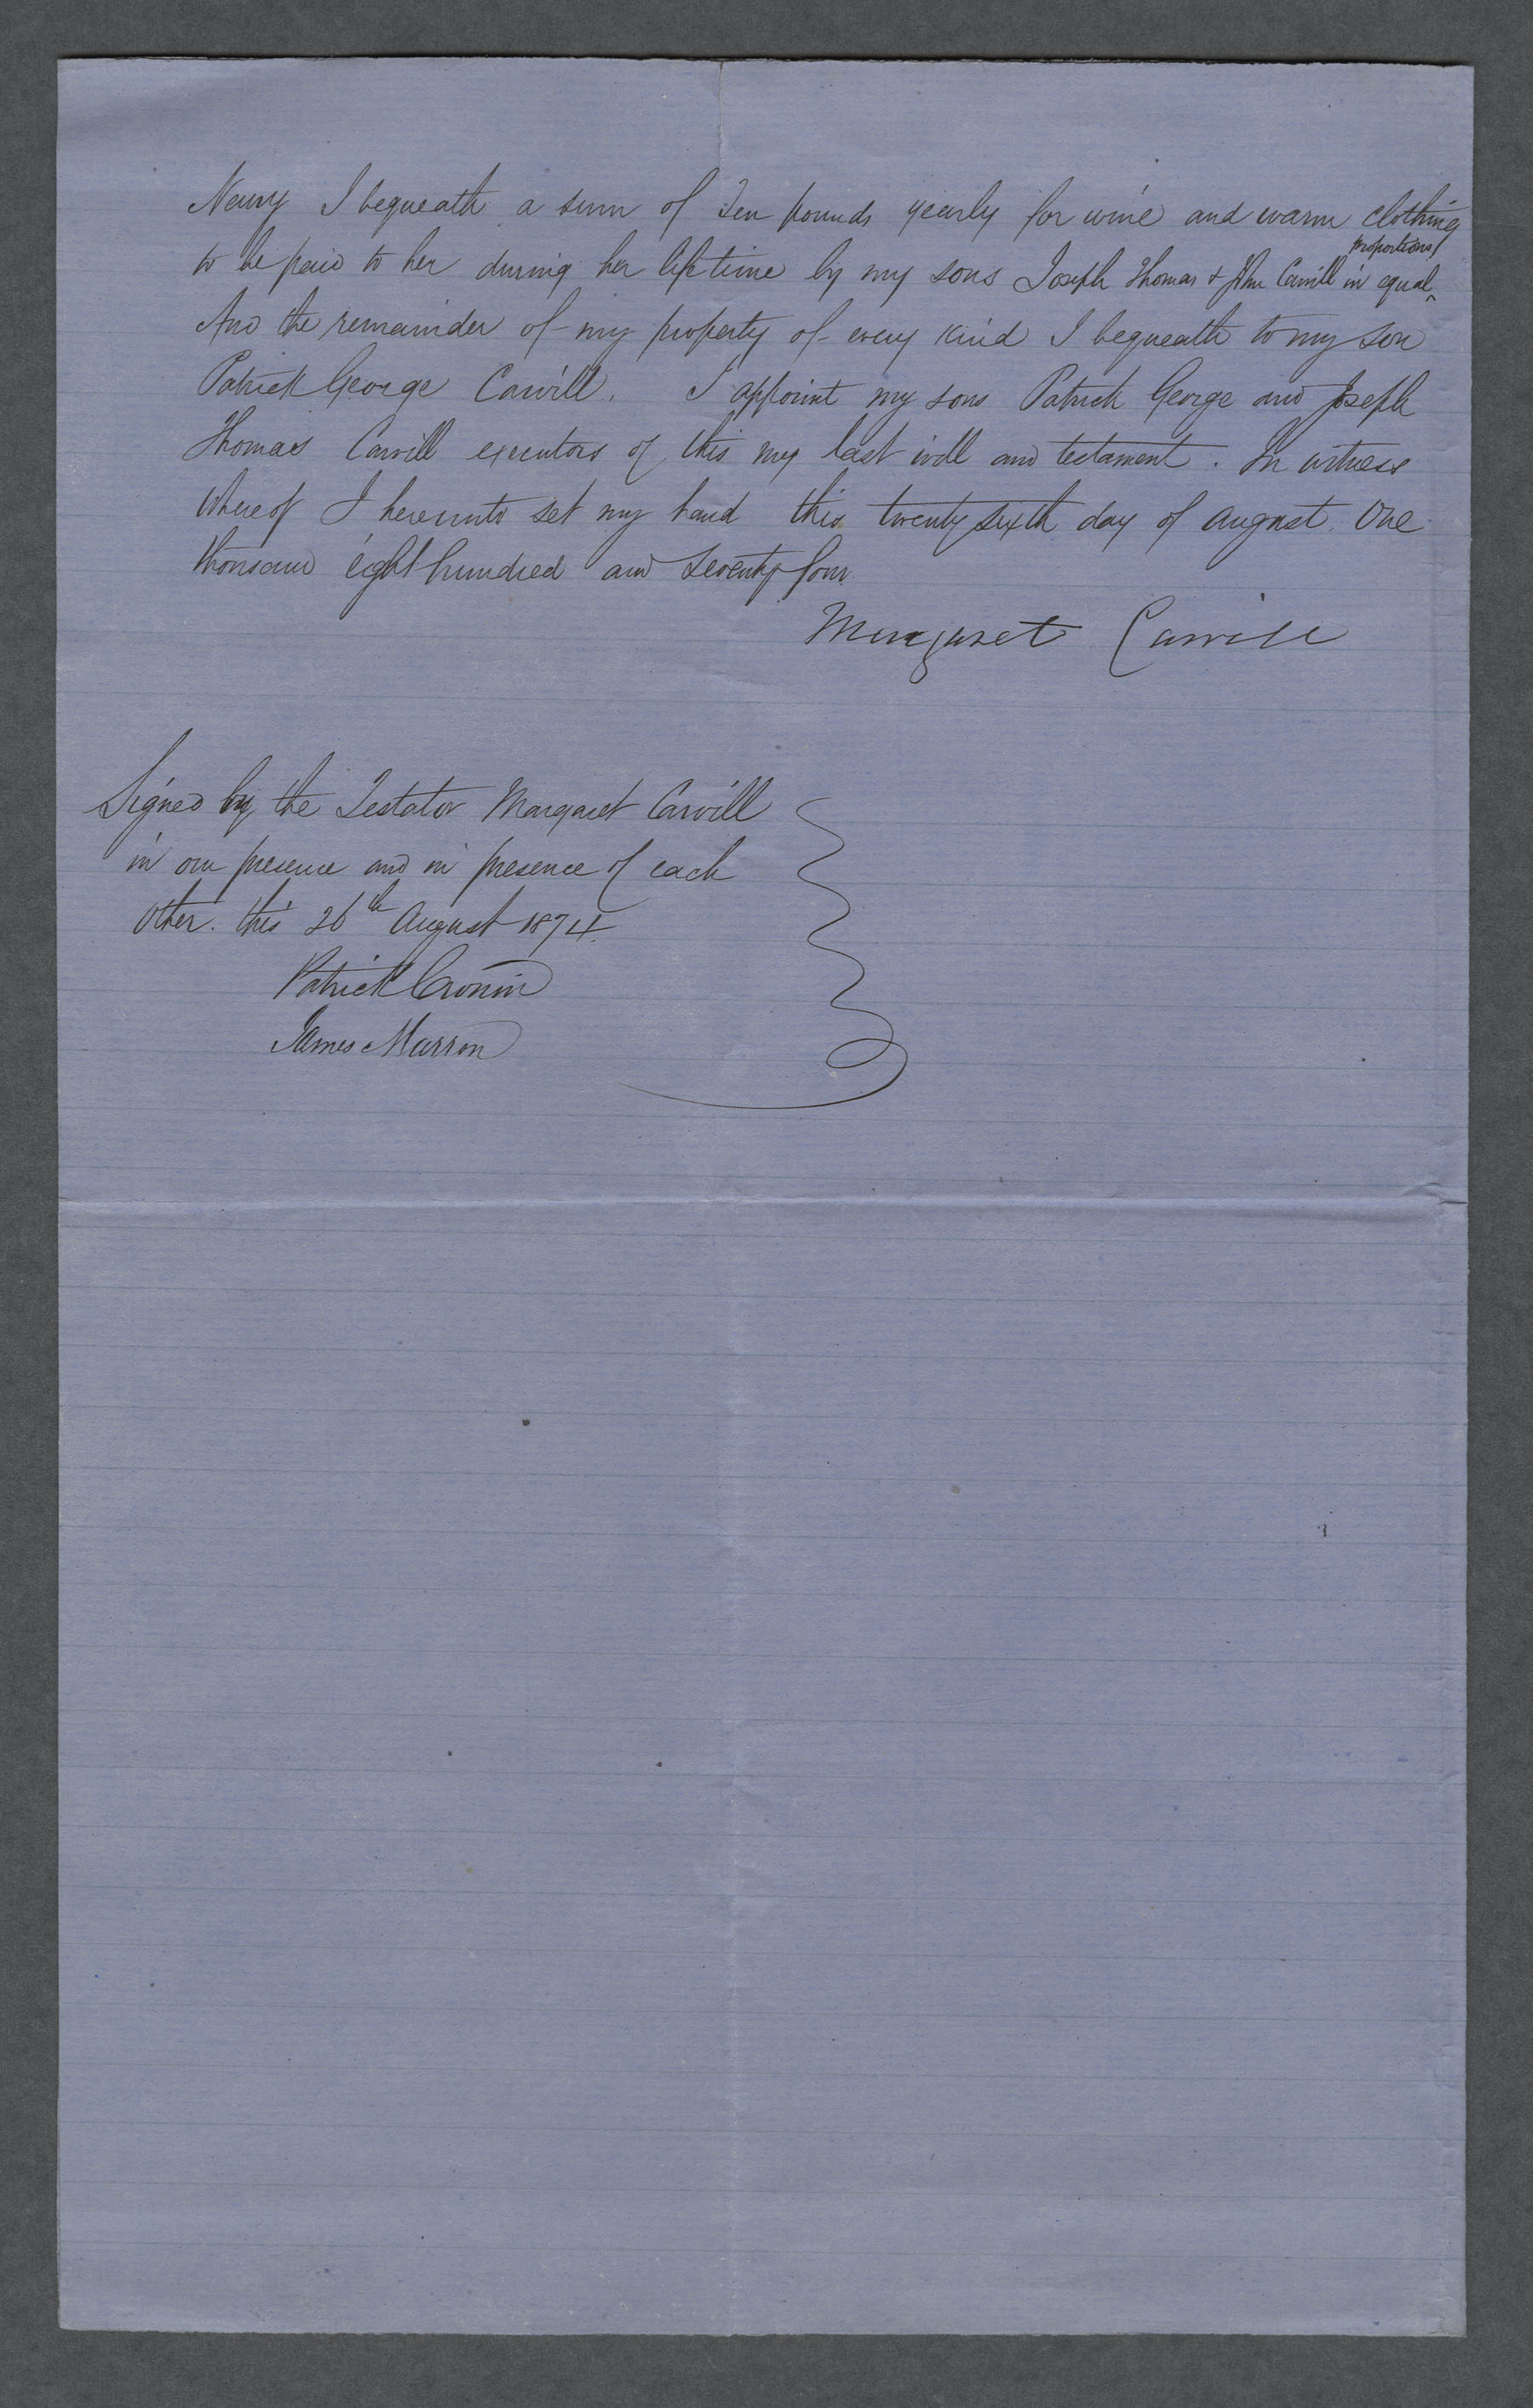 Newry I bequeath a sum of Ten pounds yearly for wine and warm clothing
to be paid to her during her lifetime by my sons Joseph Thomas & John Carvill in equal ^proportions
And the remainder of my property of every kind I bequeath to my son
Patrick George Carvill. I appoint my sons Patrick George and Joseph
Thomas Carvill executors of this my last will and testament. In witness
whereof I hereunto set my hand this twenty sixth day of August One
thousand eight hundred and seventy four
Margaret Carvill
Signed by the Testator Margaret Carvill
in our presence and in presence of each
other. this 26th August 1874.
Patrick Cronin
James Marron